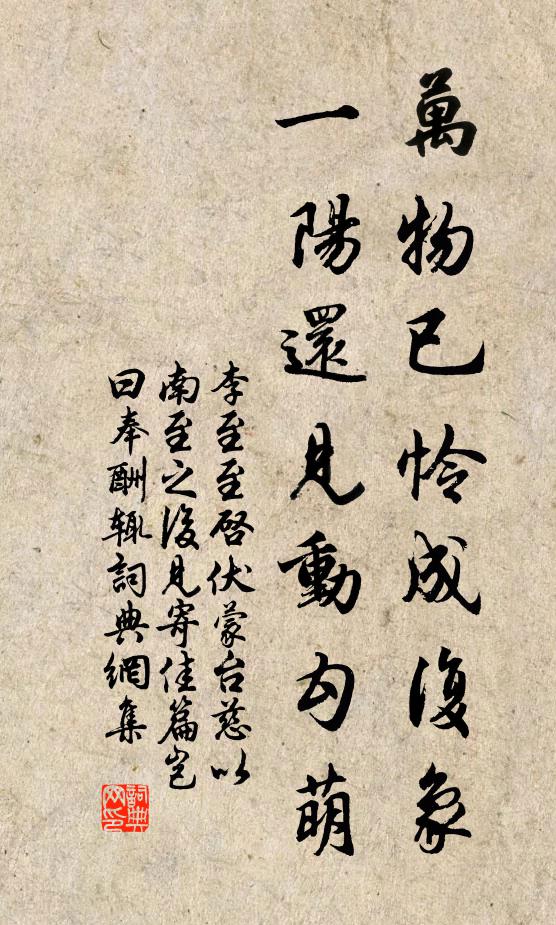 萬物已憐成復象
一陽還見動勾萌
李至至啓伏蒙台慈以
南至之後見寄佳篇豈
曰奉酬輒詞典網集
詞典網印